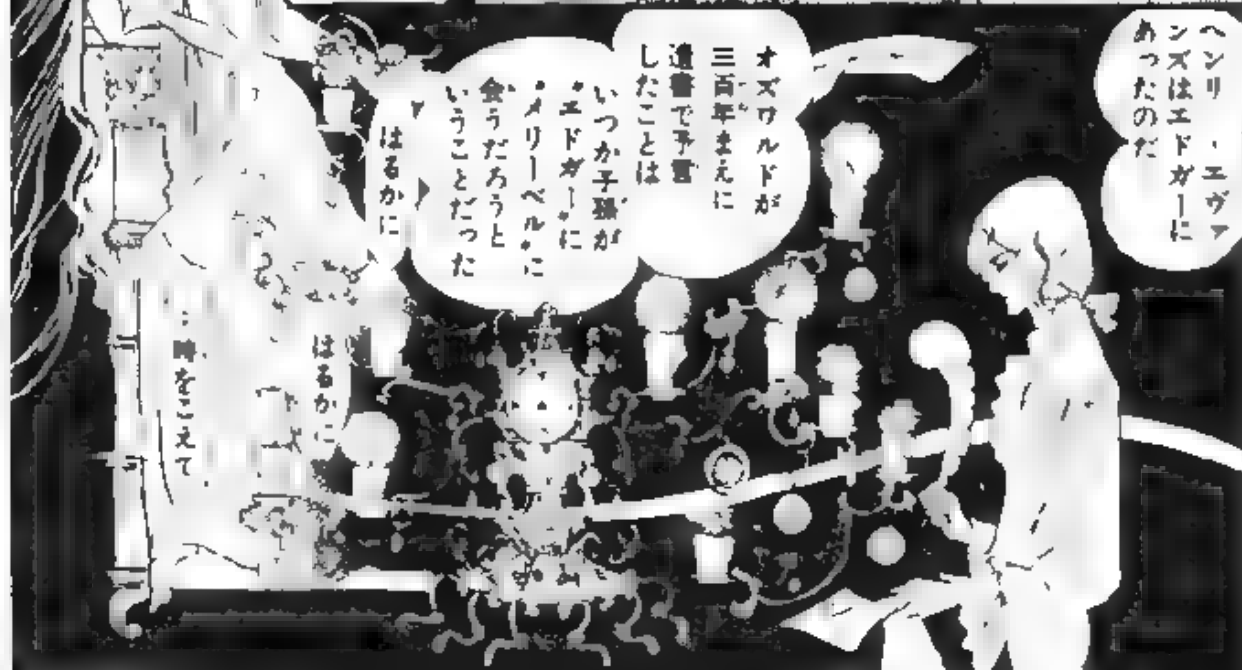 ヘンリー・エヴァ
ンズはエドガーに
あったのだ
オズワルドが
三百年まえに
遺書で予言
したことは
いつか子孫が
“エドガー”に
“メリーベル”に
会うだろうと
いうことだった
はるかに
はるかに
…時をこえて